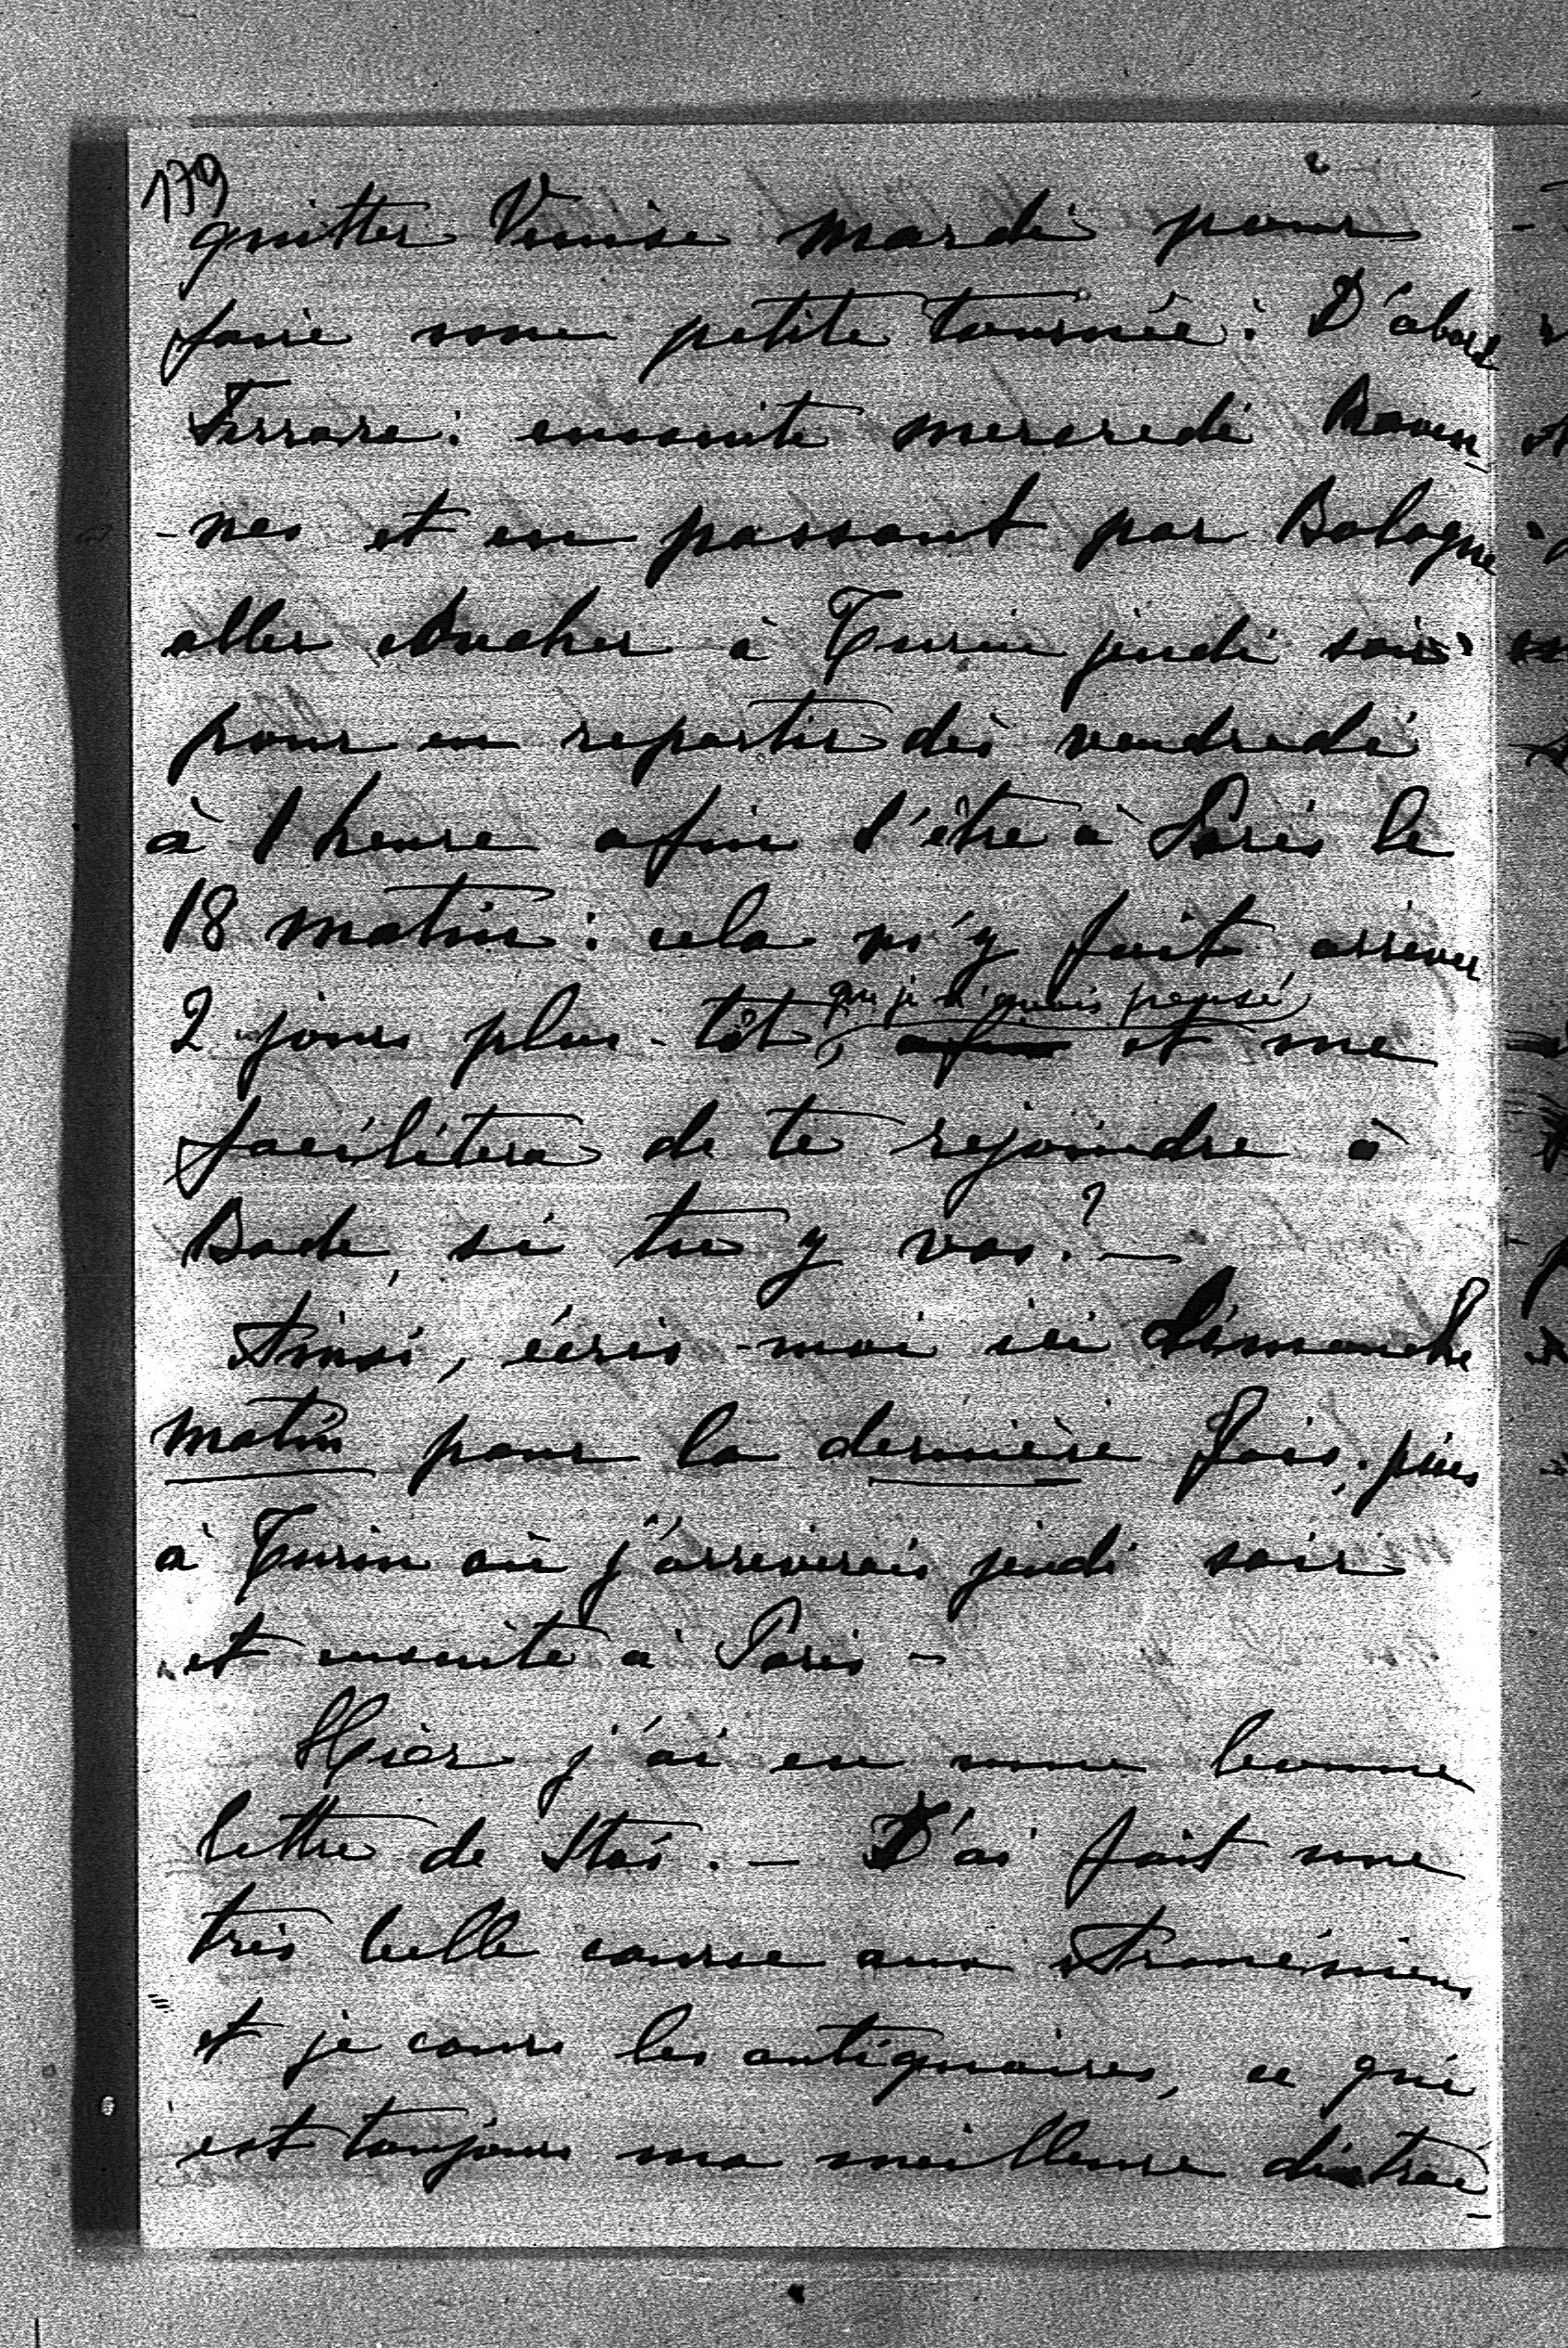 179
quitter Venise mardi pour
faire une petite tournée : D'abord
Ferrare : ensuite mercredi Raven-
-nes et en passant par Bologne
aller coucher à Turin jeudi soir
pour en repartir dès vendredi
à 1 heure afin d'être à Paris le
18 matin : cela m'y fait arriver
que je n'avais pensé
2 jours plus-tôt, et me
facilitera de te rejoindre à
Bade, si tu y vas ? —
Ainsi, écris-moi ici Dimanche
matin pour la dernière fois, puis
à Turin où j'arriverais jeudi soir
et ensuite à Paris –
Hier j'ai eu une bonne
lettre de Stas. — J'ai fait une
très belle course aux Arméniens
et je cours les antiquaires, ce qui
est toujours ma meilleure distrac-